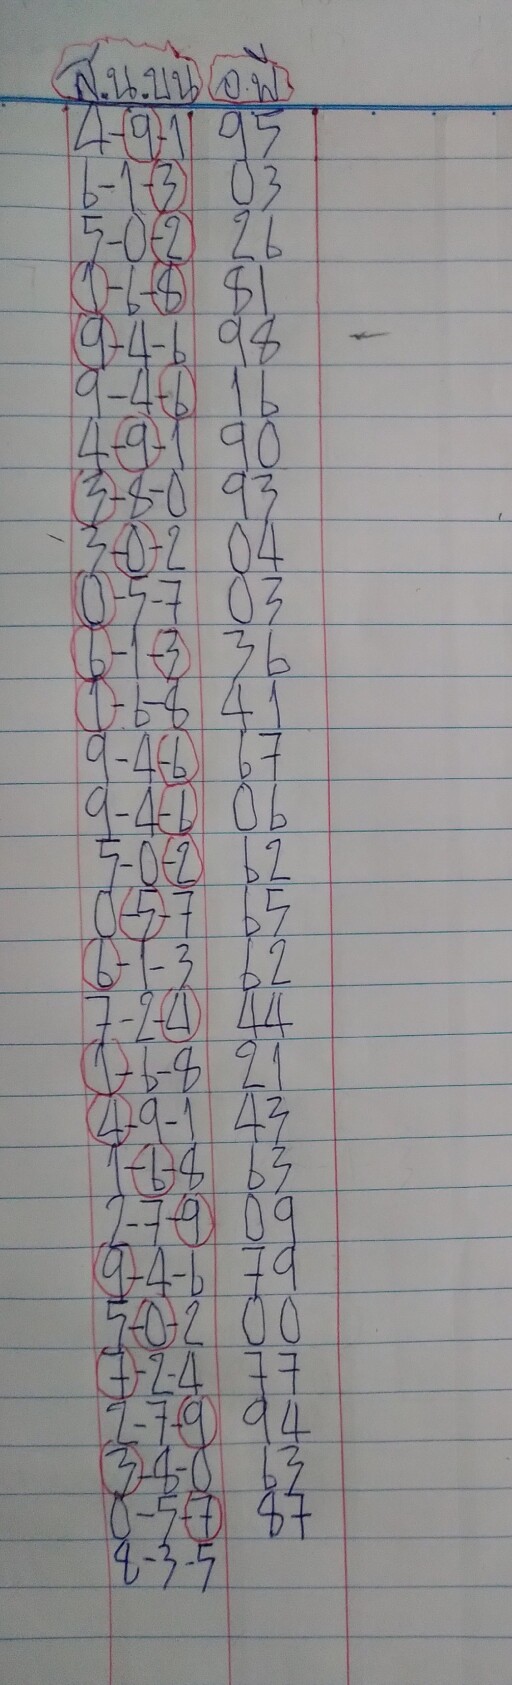 ส.น.บน อ.พี่
4-9-1 95
6-1-3 03
5-0-2 26
1-6-8 81
9-4-6 98
9-4-6 16
4-9-1 90
3-8-0 93
3-0-2 04
0-5-7 03
6-1-3 36
1-6-8 41
9-4-6 67
9-4-6 06
5-0-2 62
0-5-7 65
6-1-3 62
7-2-4 44
1-6-8 21
4-9-1 43
1-6-8 63
2-7-9 09
9-4-6 79
5-0-2 00
7-2-4 77
2-7-9 94
3-8-0 63
0-5-7 87
8-3-5